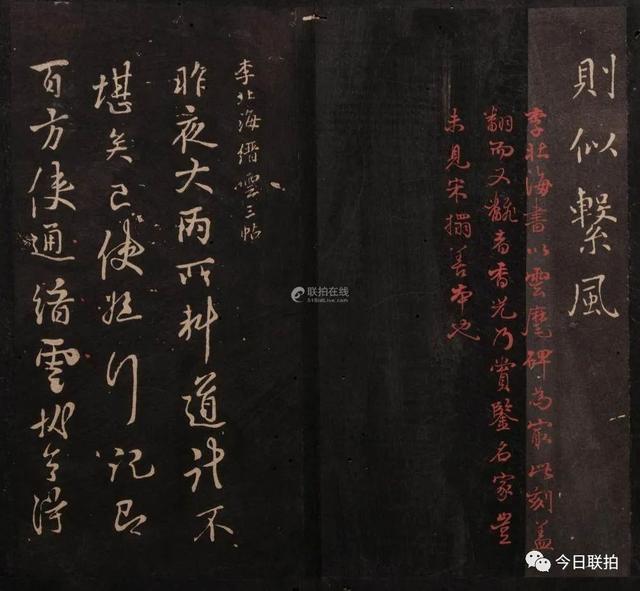 則似繫風
李北海書以雲麾碑為最此刻蓋
翻而又翻者香光乃賞鑒名家豈
未見宋搨善本也
李北海縉雲三帖
昨夜大雨所料道計不
堪矣已使行記即
百方使通縉雲令得
联拍在线
今日联拍